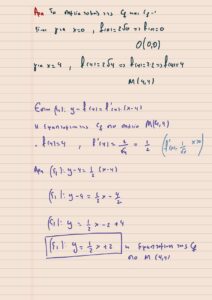 Άρα Τα σημεία τομής της Cf και Cf⁻¹
Είναι για x=0, f(0)=2√0 ⇒ f(0)=0
O(0,0)
για x=4, f(4)=2√4 ⇒ f(4)=2·2 ⇒ f(4)=4
M(4,4)
Έστω (ε₁): y-f(4)=f'(4)·(x-4)
η εφαπτομένη της Cf στο σημείο M(4,4)
• f(4)=4, f'(4)=1/√4=1/2 (f'(x)=1/√x, x>0)
Άρα (ε₁): y-4=1/2(x-4)
(ε₁): y-4=1/2x-4/2
(ε₁): y=1/2x-2+4
(ε₁): y=1/2x+2 η εφαπτομένη της Cf
στο M(4,4)